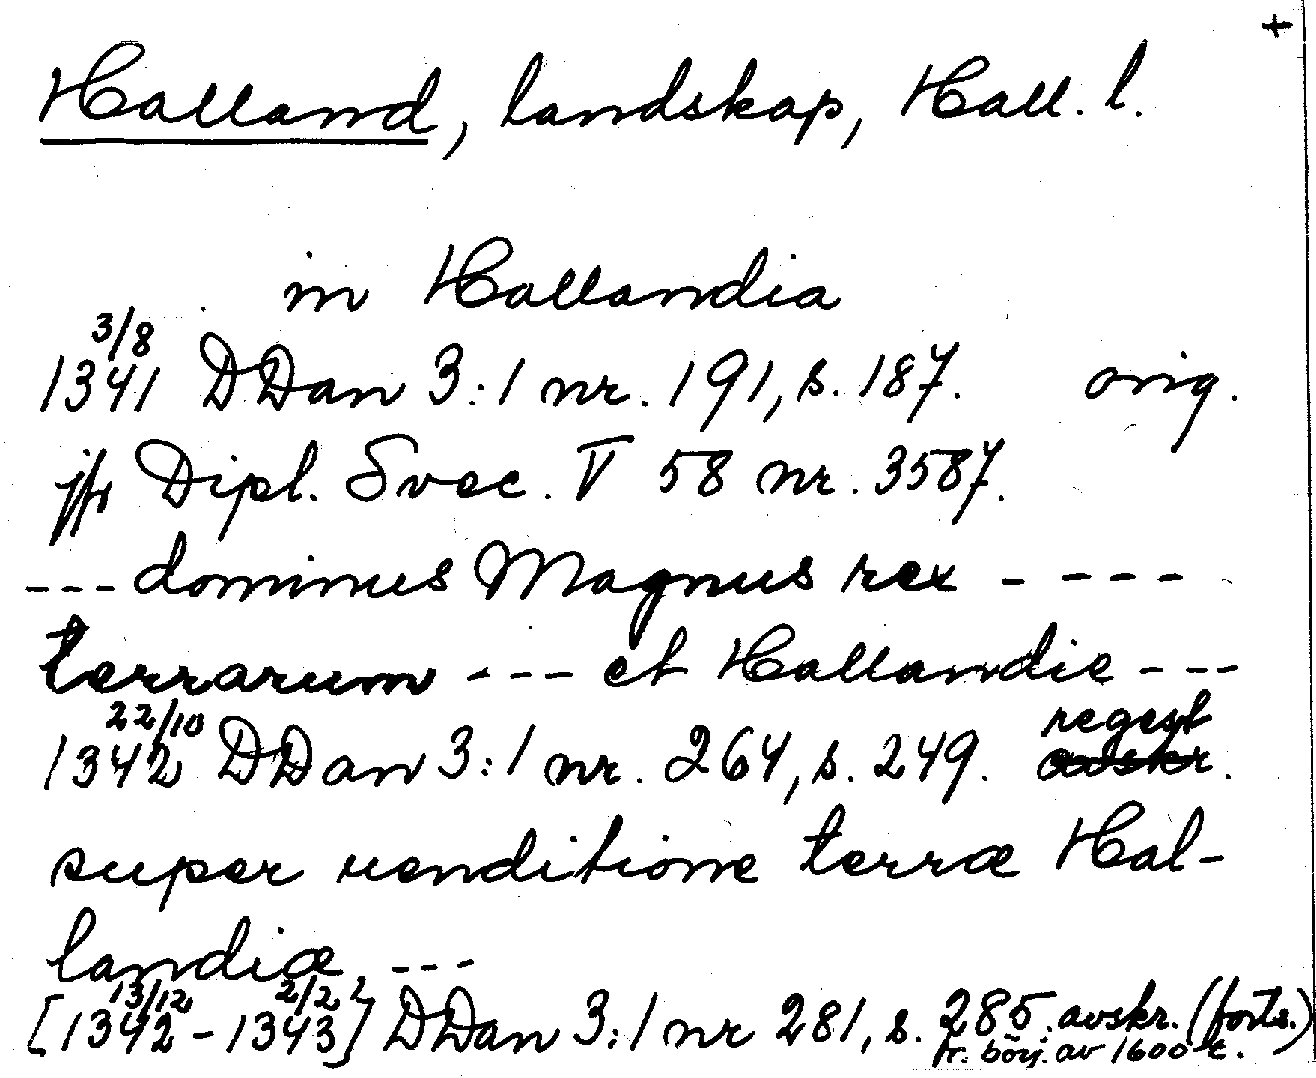 +
Halland, landskap, Hall. l.
in Hallandia
1341 3/8 DDan 3:1 nr. 191, s. 187. orig.
jfr Dipl. Svec. V 58 nr. 3587.
---dominus Magnus rex ----
terrarum --- et Hallandie ---
1342 22/10 DDan 3:1 nr. 264, s. 249. regest avskr.
super venditione terræ Hal-
landiæ, ---
[1342 13/12 - 1343 2/2] DDan 3:1 nr 281, s. 285. avskr. (forts.)
fr. börj. av 1600-t.